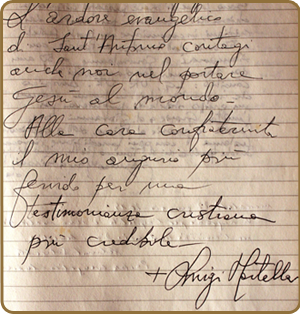 L'ardore evangelico
di Sant'Antonio contagi
anche noi nel portare
Gesù al mondo -
Alla cara confraternita
il mio augurio più
fervido per una
testimonianza cristiana
più credibile
+ Luigi Martella